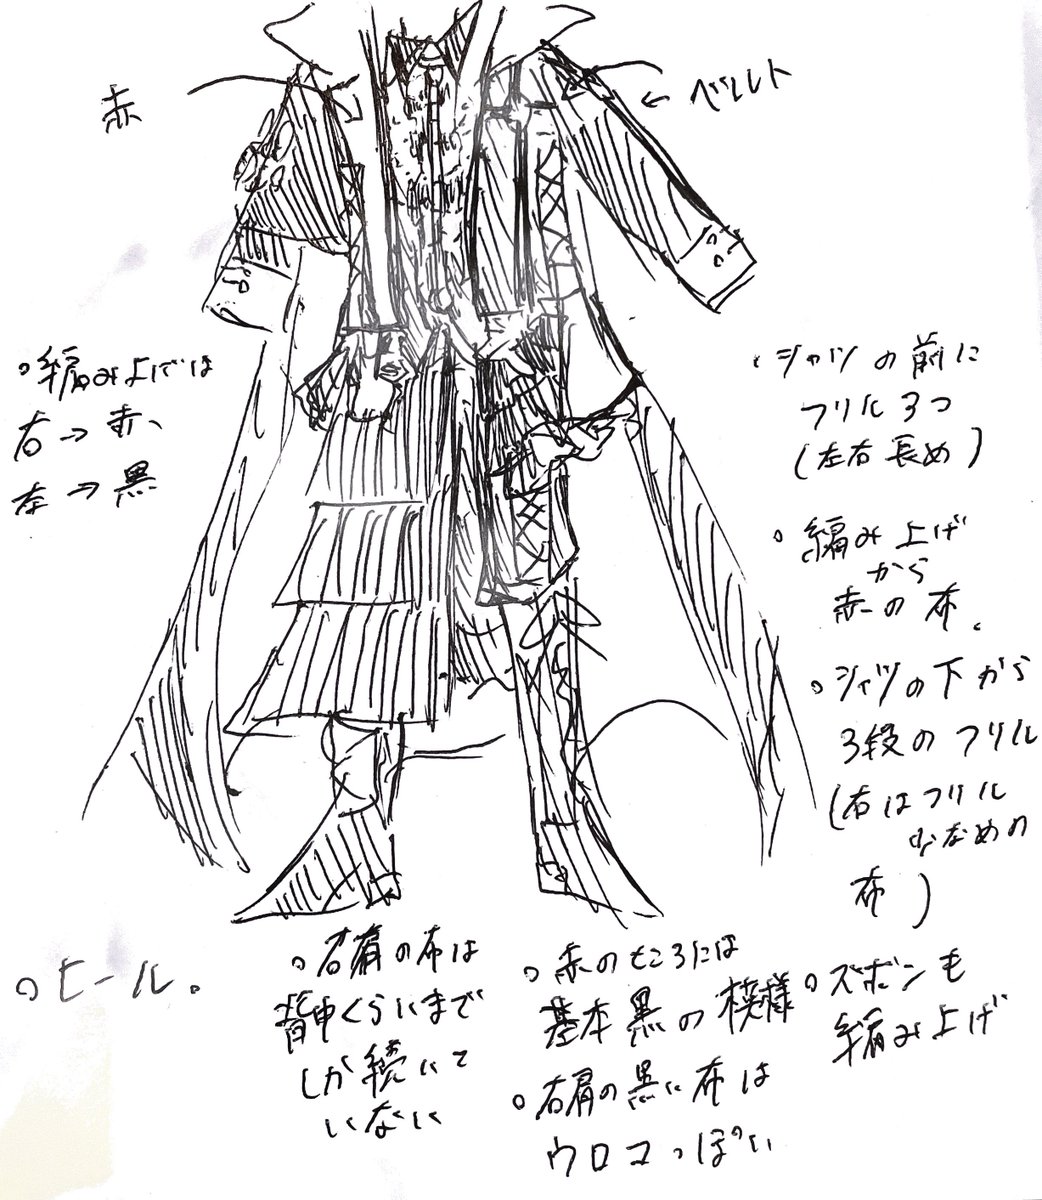 赤
ベルト
○編み上げは
右→赤、
左→黒
・シャツの前に
フリル3つ
(左右長め)
○編み上げ
から
赤の布。
○シャツの下から
3段のフリル
(右はフリル
少なめの
布)
○ヒール。
○右肩の布は
背中くらいまで
しか続いて
いない
○赤のところには
基本黒の模様
○右肩の黒い布は
ウロコっぽい
○ズボンも
編み上げ